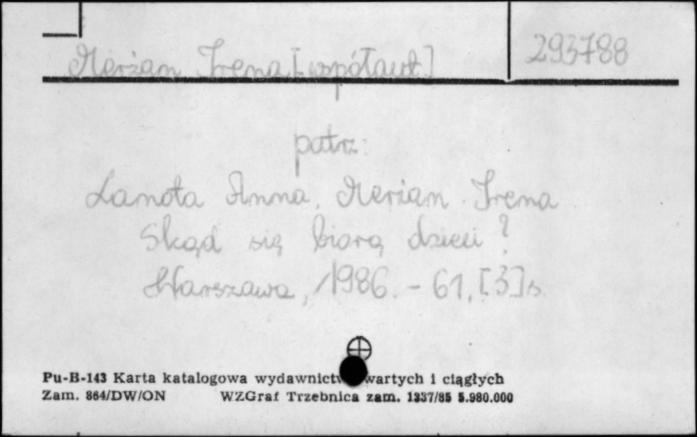 Merżan Irena [współaut.]
293788
patrz:
Lanota Anna, Merżan Irena
Skąd się biorą dzieci?
Warszawa, 1986. - 61, [3] s.
Pu-B-143 Karta katalogowa wydawnictw wartych i ciągłych
Zam. 864/DW/ON WZGraf Trzebnica zam. 1337/85 5.980.000